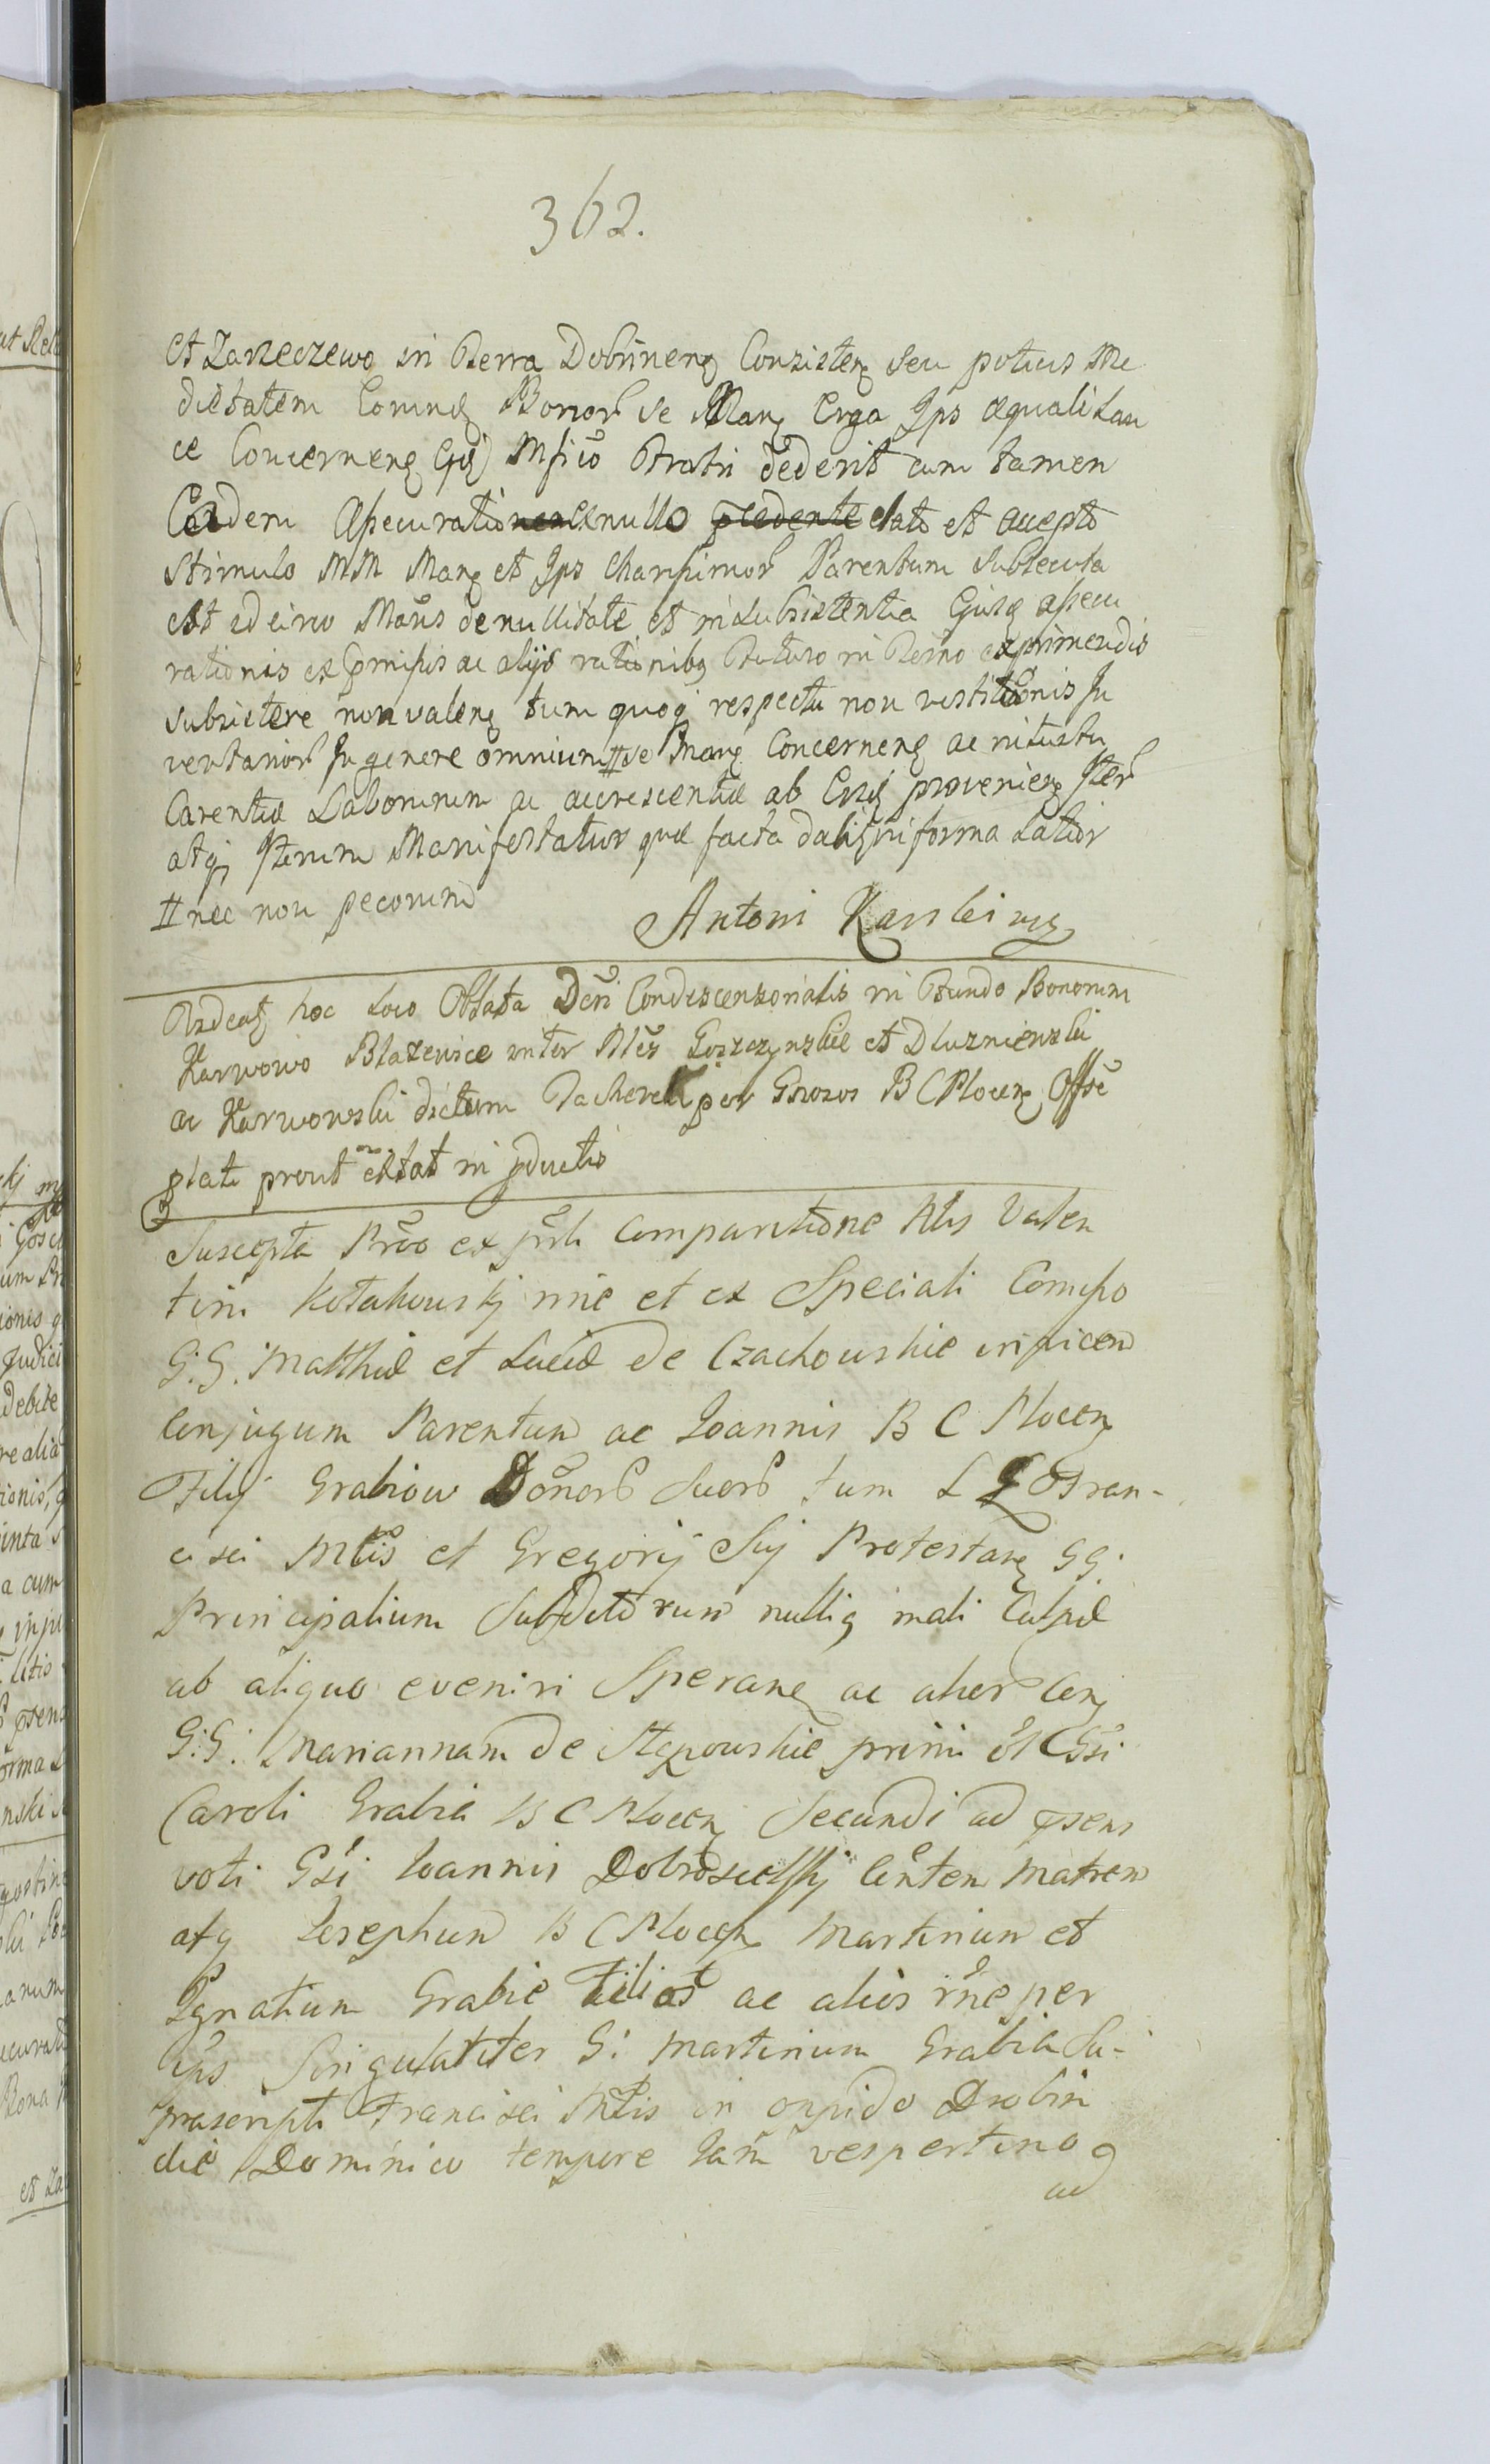 362.
et Zarzeczewo in Terra Dobrinen Consisten seu potius Me
dietatem Eorund Bonor se Man Erga Ips æquali Lan
ce Concernen Ejusd Mfico Fratri dederit cum tamen
Eadem Assecuratio ex nullo dato et accepto
stimulo MM Man et Ips Charissimor Parentum subsecuta
est idcirco Maus de nullitate et insubsistentia Ejusd assecu
rationis ex præmissis ac alijs rationibq futuro in Termo exprimendis
subsistere non valen tum quoq respectu non restitutionis In
ventarior In genere omnium # se Man Concernen ac intuitu
Carentiæ Laborum ac accrescentiæ ab Eisd provenien Iter
atq Iterum Manifestatur quæ facta dabit in forma Latior
# nec non pecorum
Antoni Karski mp
hoc Loco Oblata Dcri Condescensorialis in Fundo Bonorum
Karwowo Blazewice inter Nles Goszczynskie et Dluzniewski
ac Karwowski dictum Pacherek per Gnosos B C Plocen Offse
plati prout extat in pductis
Suscepta Prõo ex psli Comparitione Nlis Valen
tini Kotakowskj nne et ex Speciali Comisso
G. G. Matthiæ et Luciæ de Czachowskie invicem
Conjugum Parentum ac Joannis B C Plocen
Filij Grabiow Dõnor suor tum L L Fran-
cisci Mlis et Gregorij Sij Protestan GG.
Principalium Subditorum nulliq mali Culpæ
ab aliquo eveniri Speran ac
G. G. Mariannam de Stepowskie primi Gsi
Caroli Grabia B C Plocen Secundi ad psens
voti Gsi Joannis Dobrosielskj Cõnten Matrem
atq Josephum B C Plocen Martinum et
Ignatium Grabie Filios ac alios rne per
ips Singulatiter G. Martinum Grabia Su-
prascripti Francisci Mlis in oppido Drobin
die Dominico tempore Jam vespertino q
ad